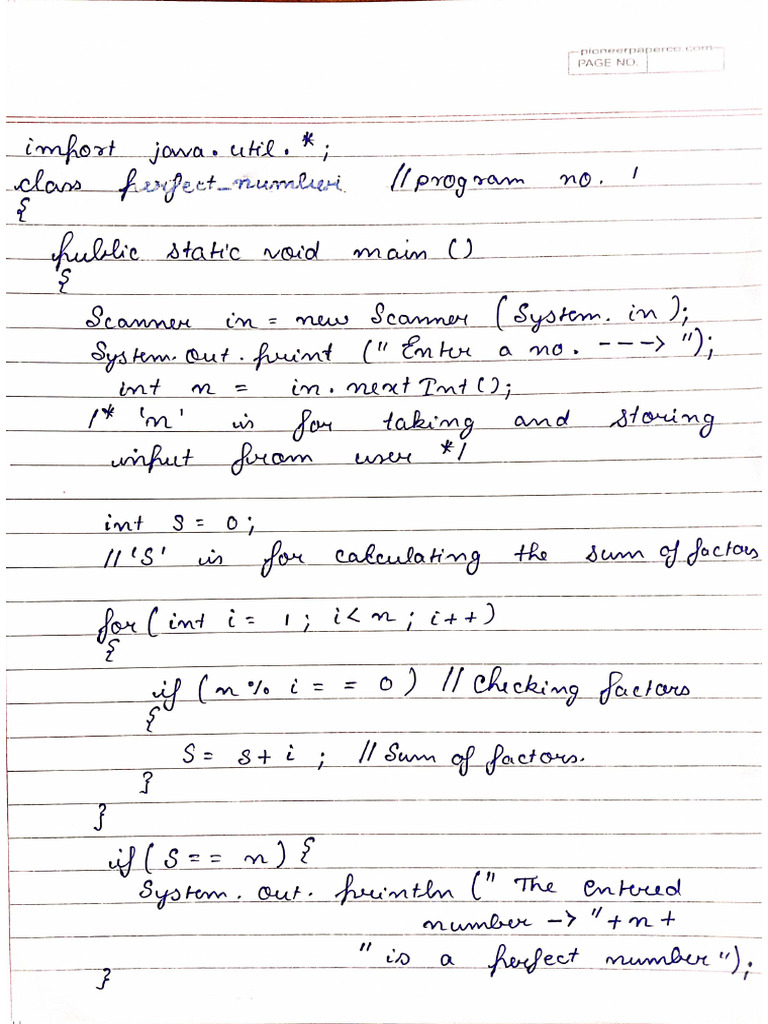 pioneerpaperco.com
PAGE NO.
import java.util.*;
class perfect_number //program no. 1
{
public static void main ()
{
Scanner in = new Scanner (System.in);
System.out.print ("Enter a no. ---> ");
int n = in.nextInt();
/* 'n' is for taking and storing
input from user */
int s = 0;
//'S' is for calculating the sum of factors
for(int i = 1; i<n; i++)
{
if (n% i = = 0) //Checking factors
{
S = s+i; //Sum of factors.
}
}
if(S== n){
System.out.println ("The entered
number -> "+n+
"is a perfect number");
}